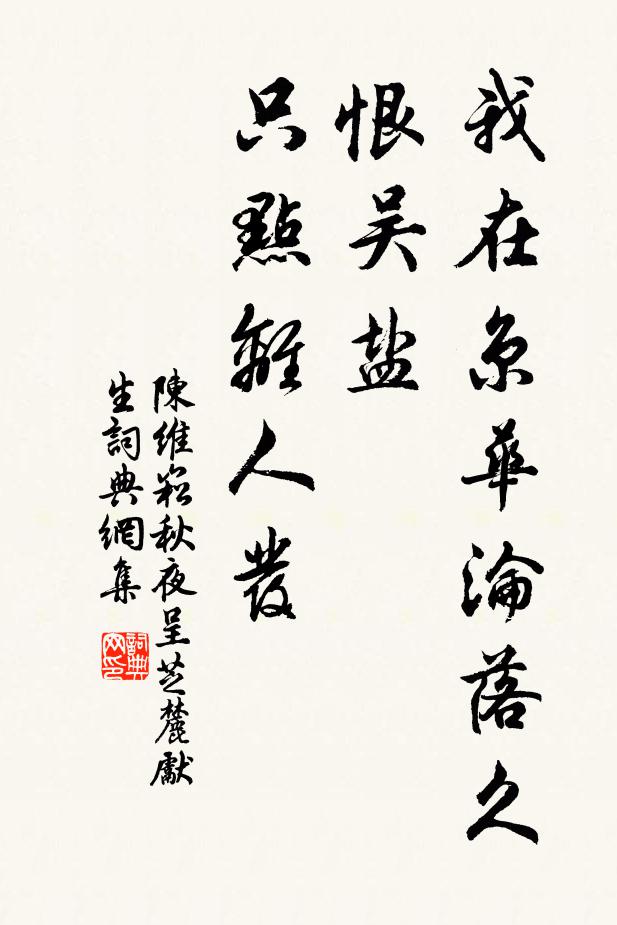 我在京華淪落久
恨吴盐
只點離人發
陳維崧秋夜呈芝麓獻
生詞典網集
詞典网印